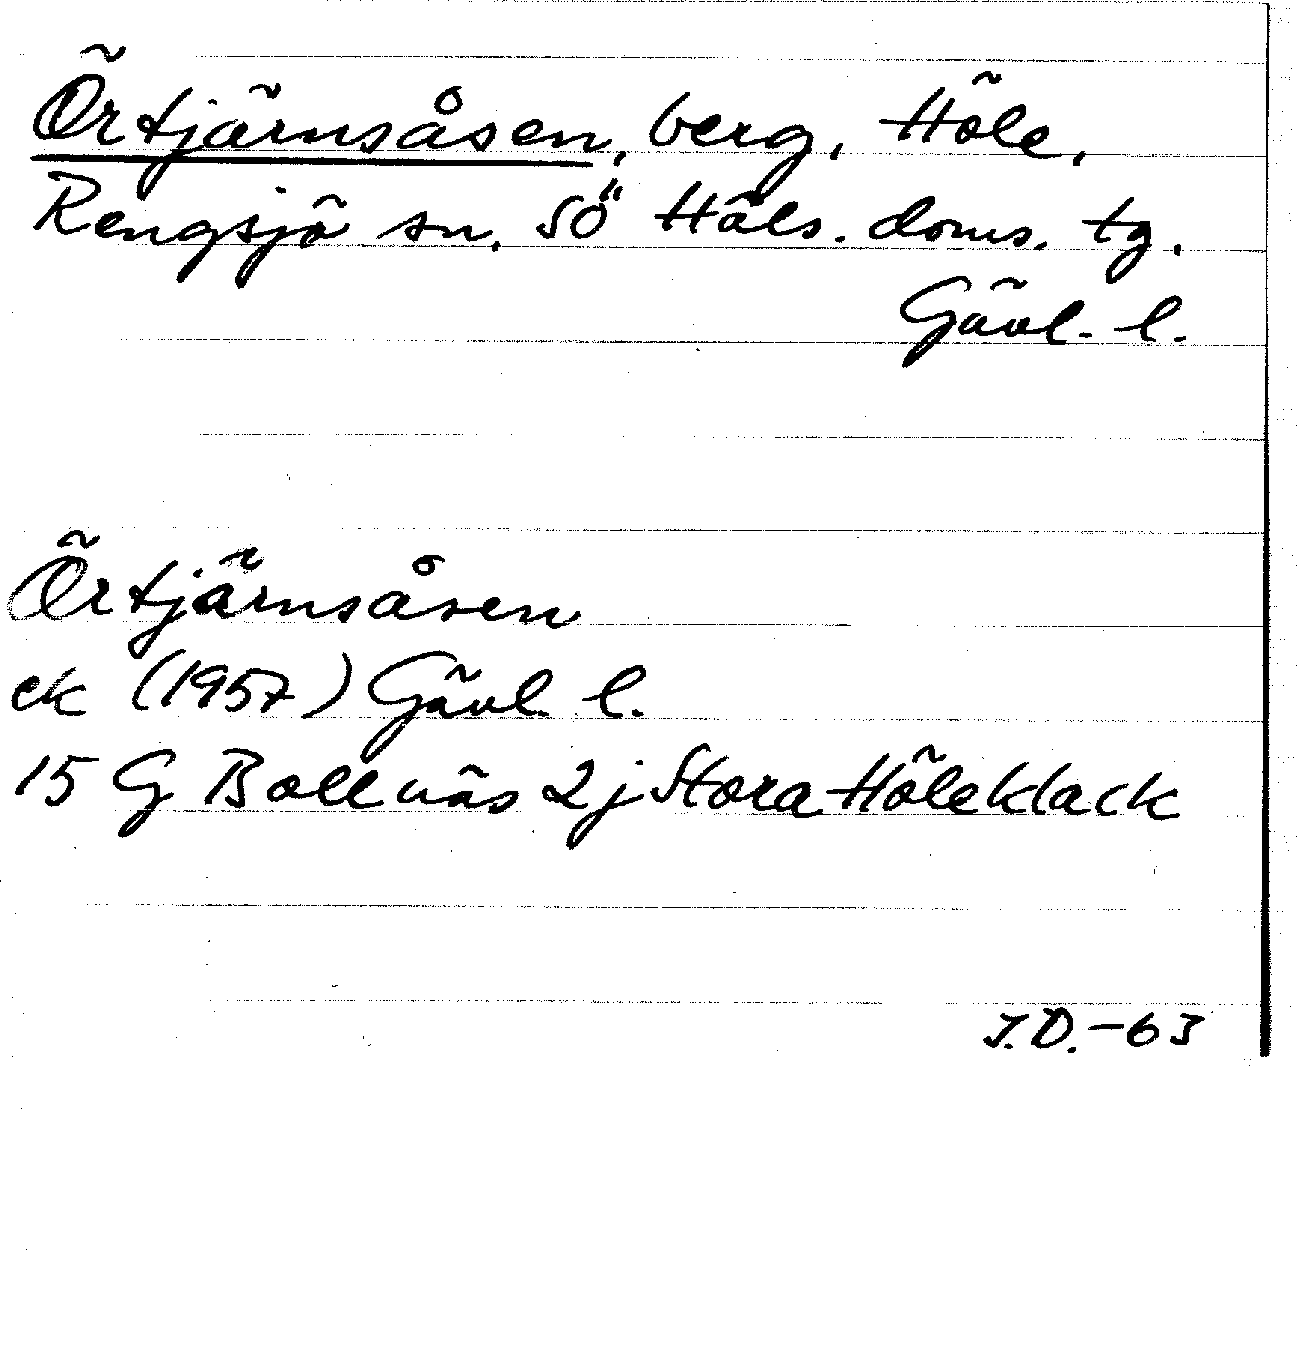 Örtjärnsåsen, berg, Höle,
Rengsjö sn. SÖ Häls. doms. tg.
Gävl. l.
Örtjärnsåsen
ek (1957) Gävl. l.
15 G Bollnäs 2j Stora Höleklack
I.D.-63